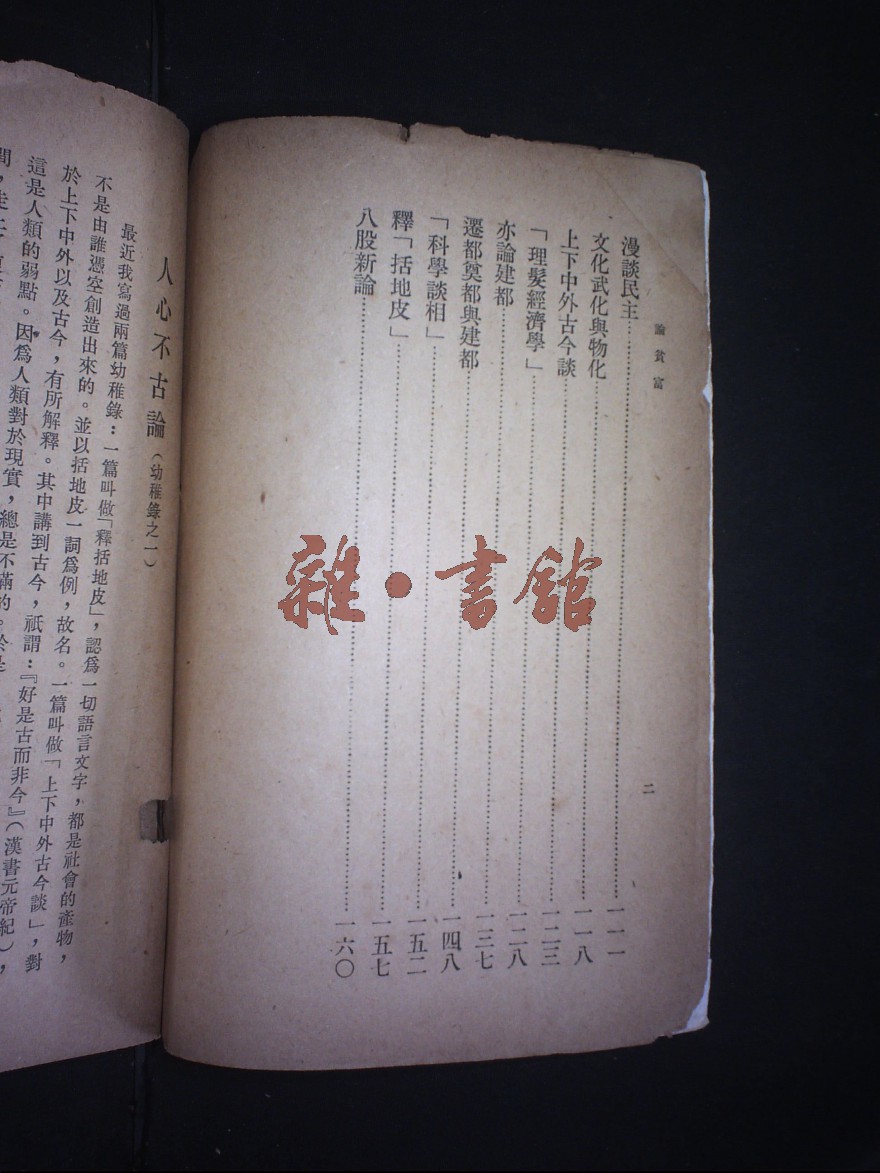 論貧富
二
漫談民主……一一一
文化武化與物化……一一八
上下中外古今談……一二三
「理髮經濟學」……一二八
亦論建都……一三七
遷都奠都與建都……一四八
「科學談相」……一五二
釋「括地皮」……一五七
八股新論……一六〇
人心不古論(幼稚錄之一)
最近我寫過兩篇幼稚錄:一篇叫做「釋括地皮」,認爲一切語言文字,都是社會的產物,
不是由誰憑空創造出來的。並以括地皮一詞爲例,故名。一篇叫做「上下中外古今談」,對
於上下中外以及古今,有所解釋。其中講到古今,祇謂:『好是古而非今』(漢書元帝紀),
這是人類的弱點。因爲人類對於現實,總是不滿的。於是
雜·書館